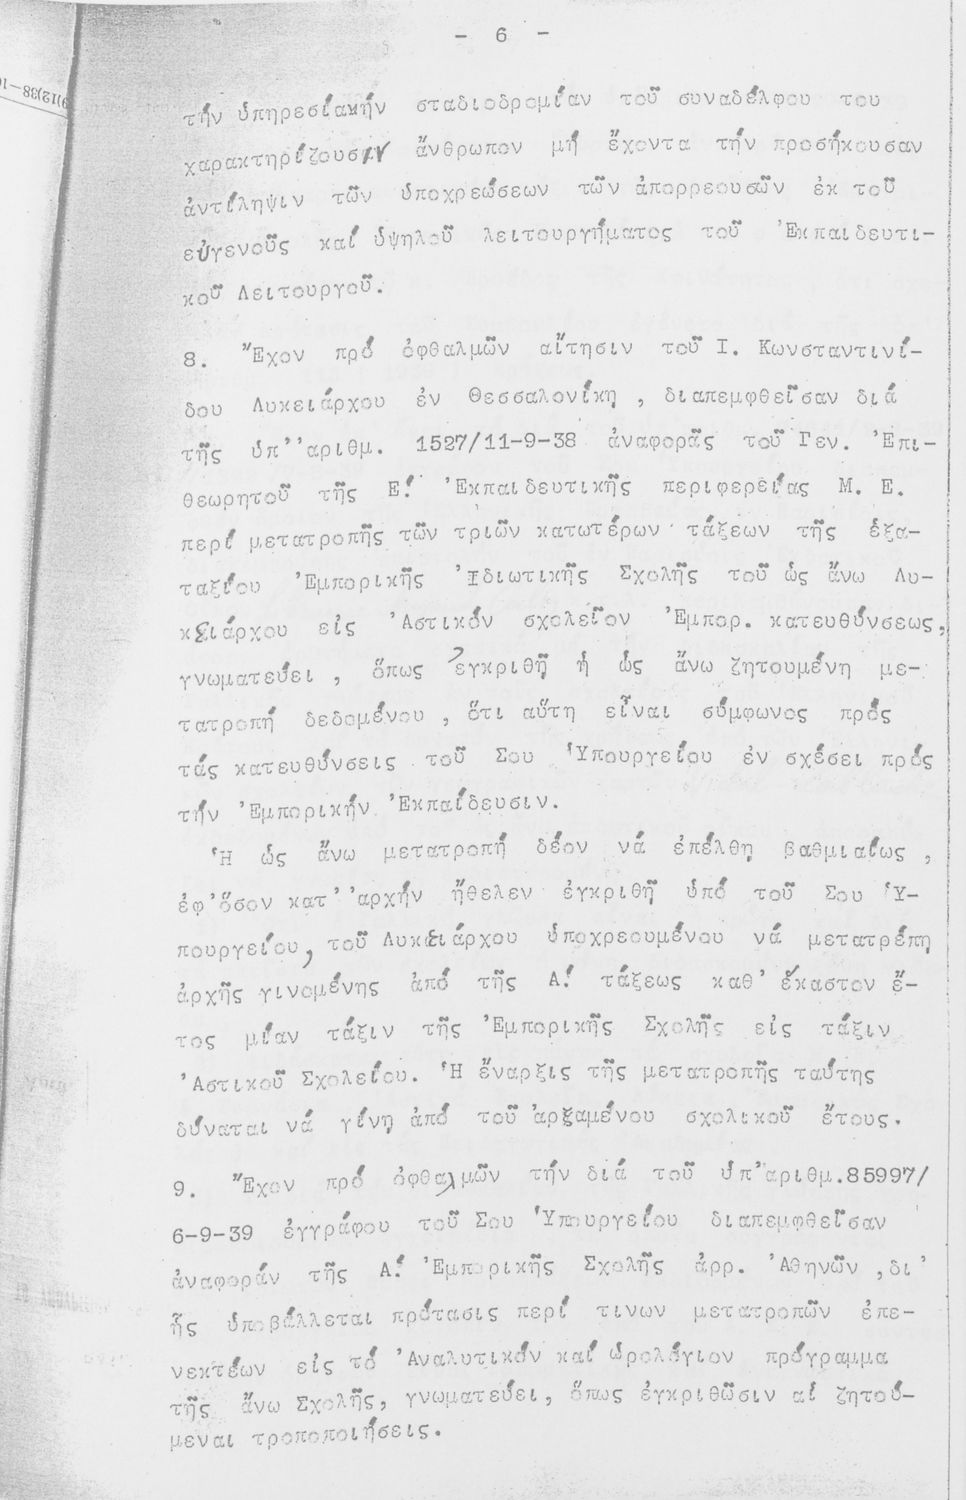 - 6 -
9)12)38-1
τήν ὑπηρεσίακήν σταδιοδρομίαν τοῦ συναδέλφου του
χαρακτηρίζουσιν ἄνθρωπον μή ἔχοντα τήν προσήκουσαν
ἀντίληψιν τῶν ὑποχρεώσεων τῶν ἀπορρεουσῶν ἐκ τοῦ
εὐγενοῦς καί ὑψηλοῦ λειτουργήματος τοῦ Ἐκπαιδευτι-
κοῦ Λειτουργοῦ.
8. Ἔχον πρό ὀφθαλμῶν αἴτησιν τοῦ Ι. Κωνσταντινί-
δου Λυκειάρχου ἐν Θεσσαλονίκῃ , διαπεμφθεῖσαν διά
τῆς ὑπ''αριθμ. 1527/11-9-38 ἀναφορᾶς τοῦ Γεν. Ἐπι-
θεωρητοῦ τῆς Ε! Ἐκπαιδευτικῆς περιφερείας Μ. Ε.
περί μετατροπῆς τῶν τριῶν κατωτέρων τάξεων τῆς ἑξα-
ταξίου Ἐμπορικῆς Ἰδιωτικῆς Σχολῆς τοῦ ὡς ἄνω Λυ-
κειάρχου εἰς Ἀστικόν σχολεῖον Ἐμπορ. κατευθύνσεως,
γνωματεύει , ὅπως ἐγκριθῇ ἡ ὡς ἄνω ζητουμένη με-
τατροπή δεδομένου , ὅτι αὕτη εἶναι σύμφωνος πρός
τάς κατευθύνσεις τοῦ Σου Ὑπουργείου ἐν σχέσει πρός
τήν Ἐμπορικήν Ἐκπαίδευσιν.
Ἡ ὡς ἄνω μετατροπή δέον νά ἐπέλθῃ βαθμιαίως ,
ἐφ'ὅσον κατ''αρχήν ἤθελεν ἐγκριθῇ ὑπό τοῦ Σου Ὑ-
πουργείου, τοῦ Λυκειάρχου ὑποχρεουμένου νά μετατρέπῃ
ἀρχῆς γινομένης ἀπό τῆς Α! τάξεως καθ' ἕκαστον ἔ-
τος μίαν τάξιν τῆς Ἐμπορικῆς Σχολῆς εἰς τάξιν
Ἀστικοῦ Σχολείου. Ἡ ἔναρξις τῆς μετατροπῆς ταύτης
δύναται νά γίνῃ ἀπό τοῦ ἀρξαμένου σχολικοῦ ἔτους.
9. Ἔχον πρό ὀφθαλμῶν τήν διά τοῦ ὑπ'αριθμ.85997/
6-9-39 ἐγγράφου τοῦ Σου Ὑπουργείου διαπεμφθεῖσαν
ἀναφοράν τῆς Α! Ἐμπορικῆς Σχολῆς ἀρρ. Ἀθηνῶν ,δι'
ἧς ὑποβάλλεται πρότασις περί τινων μετατροπῶν ἐπε-
νεκτέων εἰς τό Ἀναλυτικόν καί ὡρολόγιον πρόγραμμα
τῆς ἄνω Σχολῆς, γνωματεύει, ὅπως ἐγκριθῶσιν αἱ ζητού-
μεναι τροποποιήσεις.